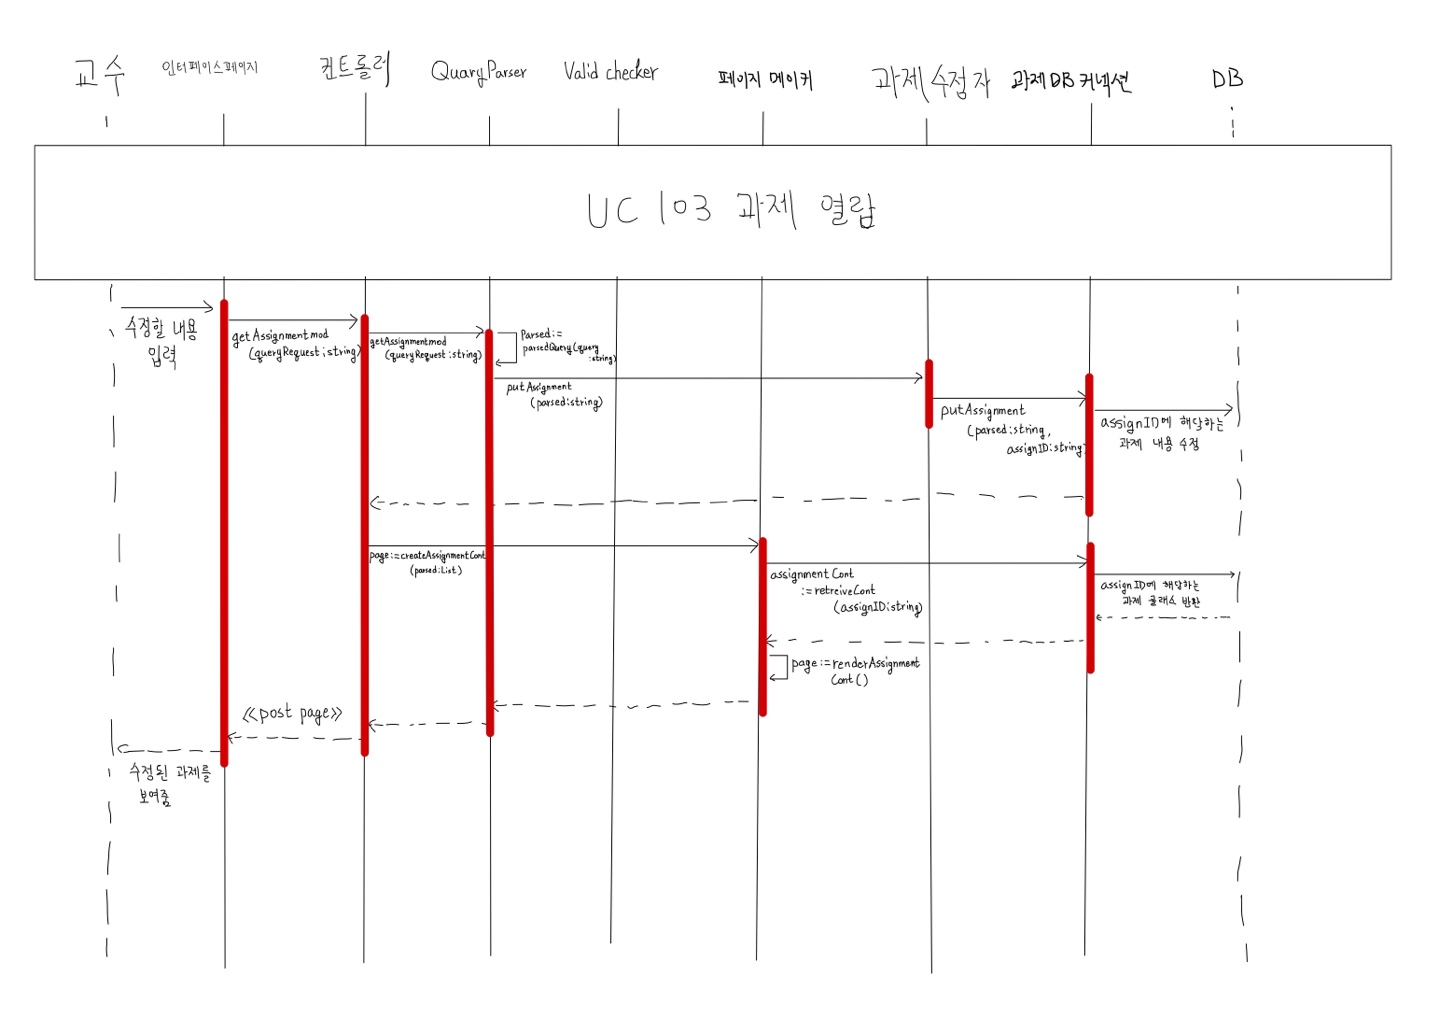 교수
인터페이스페이지
컨트롤러
QuaryParser
Valid checker
페이지 메이커
과제 수정자
과제 DB 커넥션
DB
UC 103 과제 열람
수정할 내용
입력
getAssignmentmod
(queryRequest:string)
getAssignmentmod
(queryRequest:string)
Parsed:=
parsedQuery(query
:string)
putAssignment
(parsed:string)
putAssignment
(parsed:string,
assignID:string)
assignID에 해당하는
과제 내용 수정
page:=createAssignmentCont
(parsed:List)
assignmentCont
:=retreiveCont
(assignID:string)
assignID에 해당하는
과제 클래스 반환
page:=renderAssignment
Cont()
<<post page>>
수정된 과제를
보여줌